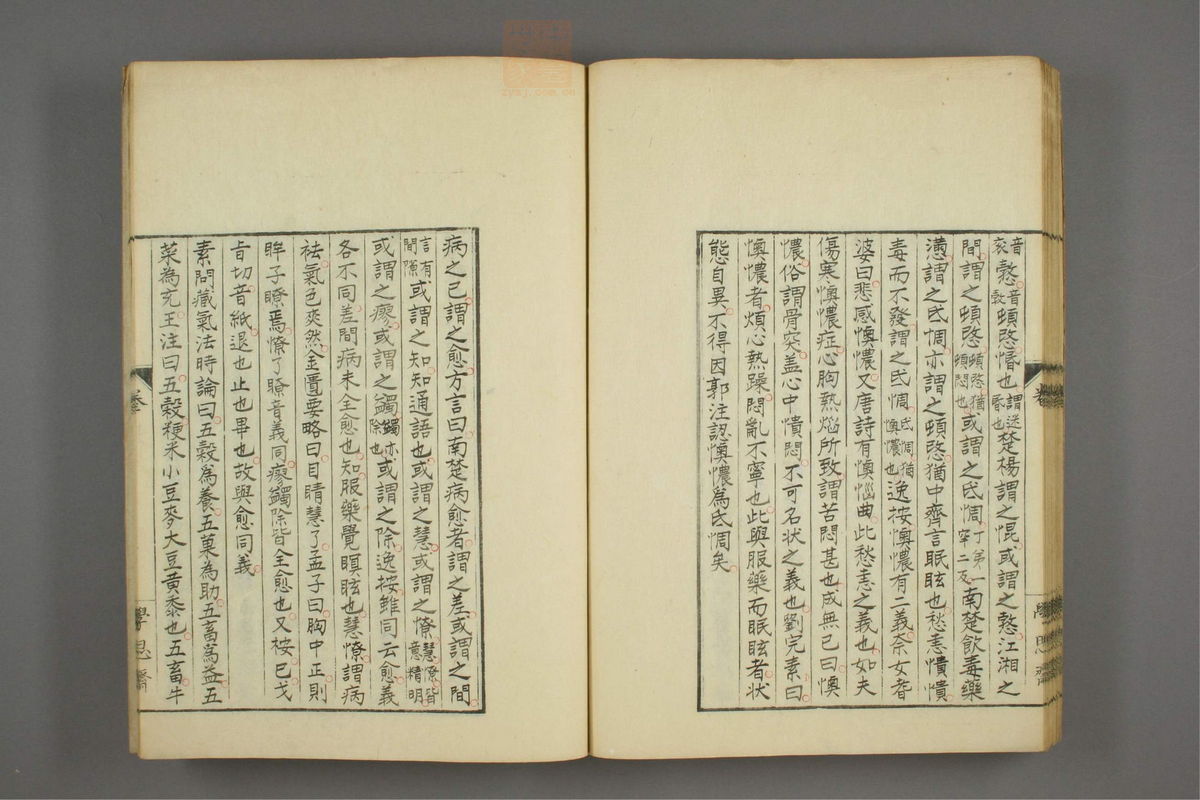 音
衮愂音敦頓愍惛也謂迷昏也楚楊謂之惃或謂之愂江湘之
間謂之頓愍頓愍猶頓悶也或謂之氐惆丁弟一牢二反南楚飲毒藥
懣謂之氐惆亦謂之頓愍猶中齊言眠眩也愁恚憒憒
毒而不發謂之氐惆氐惆猶懊憹也逸按懊憹有二義奈女耆
婆曰悲感懊憹又唐詩有懊惱曲此愁恚之義也如夫
傷寒懊憹症心胸熱惱所致謂苦悶甚也成無己曰懊
憹俗謂骨突蓋心中憒悶不可名状之義也劉完素曰
懊憹者煩心熱躁悶亂不寧也此與服藥而眠眩者状
態自異不得因郭注認懊憹為氐惆矣
病之已謂之愈方言曰南楚病愈者謂之差或謂之間
言有間隙或謂之知知通語也或謂之慧或謂之憭慧憭皆意精明
或謂之瘳或謂之蠲蠲亦除也或謂之除逸按雖同云愈義
各不同差間病未全愈也知服藥覺瞑眩也慧憭謂病
祛氣色爽然金匱要略曰目睛慧了孟子曰胸中正則
眸子瞭焉憭了瞭音義同瘳蠲除皆全愈也又桉已戈
旨切音紙退也止也畢也故與愈同義
素問藏氣法時論曰五穀為養五菓為助五畜為益五
菜為充王注曰五穀粳米小豆麥大豆黄黍也五畜牛
學思齋